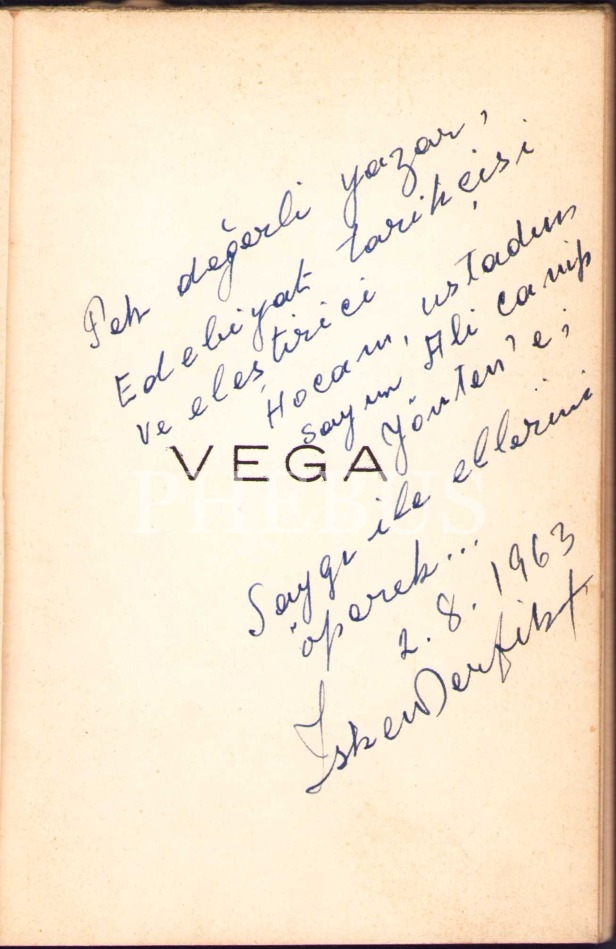 Pek değerli yazar,
Edebiyat tarihçisi
ve eleştirici
Hocam, ustadım
sayın Ali canip
Yönten'e;
VEGA
PHEBUS
Saygı ile ellerini
öperek...
2.8.1963
İskender